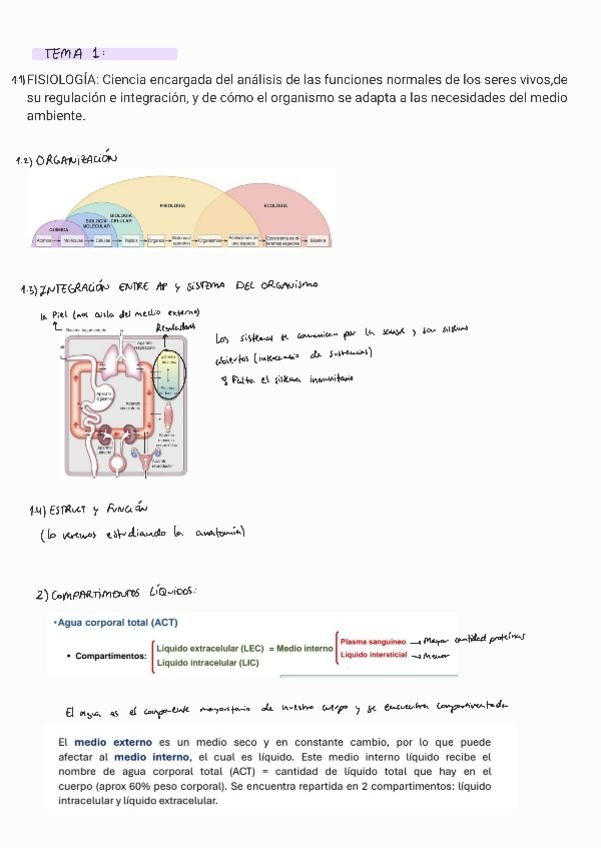 TEMA 1:
1.1) FISIOLOGÍA: Ciencia encargada del análisis de las funciones normales de los seres vivos,de
su regulación e integración, y de cómo el organismo se adapta a las necesidades del medio
ambiente.
1.2) ORGANIZACIÓN
FISIOLOGÍA
ECOLOGÍA
BIOLOGÍA CELULAR
BIOLOGÍA MOLECULAR
QUÍMICA
Átomos Moléculas Células Tejidos Órganos Organismos Biosfera
1.3) INTEGRACIÓN ENTRE AP y SISTEMA DEL ORGANISMO
la Piel (nos aisla del medio externo)
Reguladores
Sistema tegumentario
Aparato respiratorio
Aparato digestivo
Aparato urinario
Aparato reproductor
Los sistemas se comunican por la sangre y son sistemas
abiertos (intercambio de sustancias)
Falta el sistema inmunitario
1.4) ESTRUCT y FUNCIÓN
(lo veremos estudiando la anatomía)
2) COMPARTIMENTOS LÍQUIDOS:
•Agua corporal total (ACT)
• Compartimentos:
Líquido extracelular (LEC) = Medio interno
Líquido intracelular (LIC)
Plasma sanguíneo → Mayor cantidad proteínas
Líquido intersticial → Menor
El agua es el componente mayoritario de nuestro cuerpo y se encuentra
El medio externo es un medio seco y en constante cambio, por lo que puede
afectar al medio interno, el cual es líquido. Este medio interno líquido recibe el
nombre de agua corporal total (ACT) = cantidad de líquido total que hay en el
cuerpo (aprox 60% peso corporal). Se encuentra repartida en 2 compartimentos: líquido
intracelular y líquido extracelular.